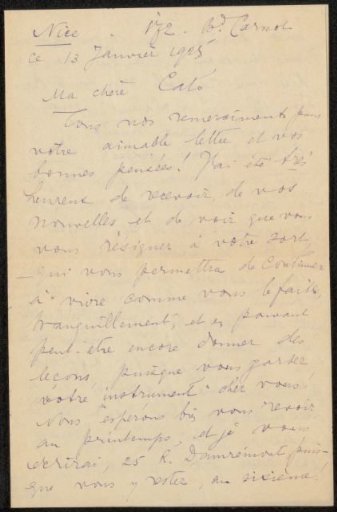 Nice . 172. Bd. Carnot
ce 13 Janvier 1925
Ma chère Cato
Tous nos remerciments pour
votre aimable lettre et vos
bonnes pensées! J'ai été très
heureux de recevoir de vos
nouvelles et de voir que vous
vous résignez à votre sort,
qui vous permettra de continuer
à vivre comme vous le faites
tranquillement, et en pouvant
peut-être encore donner des
leçons, puisque vous gardez
votre instrument chez vous.
Nous espérons bien vous revoir
au printemps, et je vous
écrirai, 25 R. Damrémont, puis-
que vous y restez, au sixième!